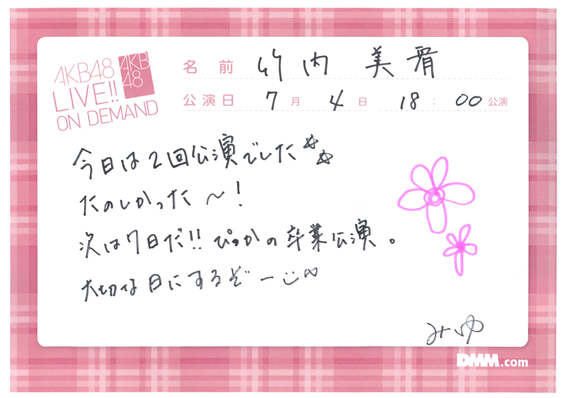 AKB48
LIVE!!
ON DEMAND
AKB
48
名前 竹内 美宥
公演日 7月4日 18:00公演
今日は2回公演でした☆☆
たのしかった〜!
次は7日だ!!ぴっかの卒業公演。
大切な日にするぞー
みゆ
DMM.com